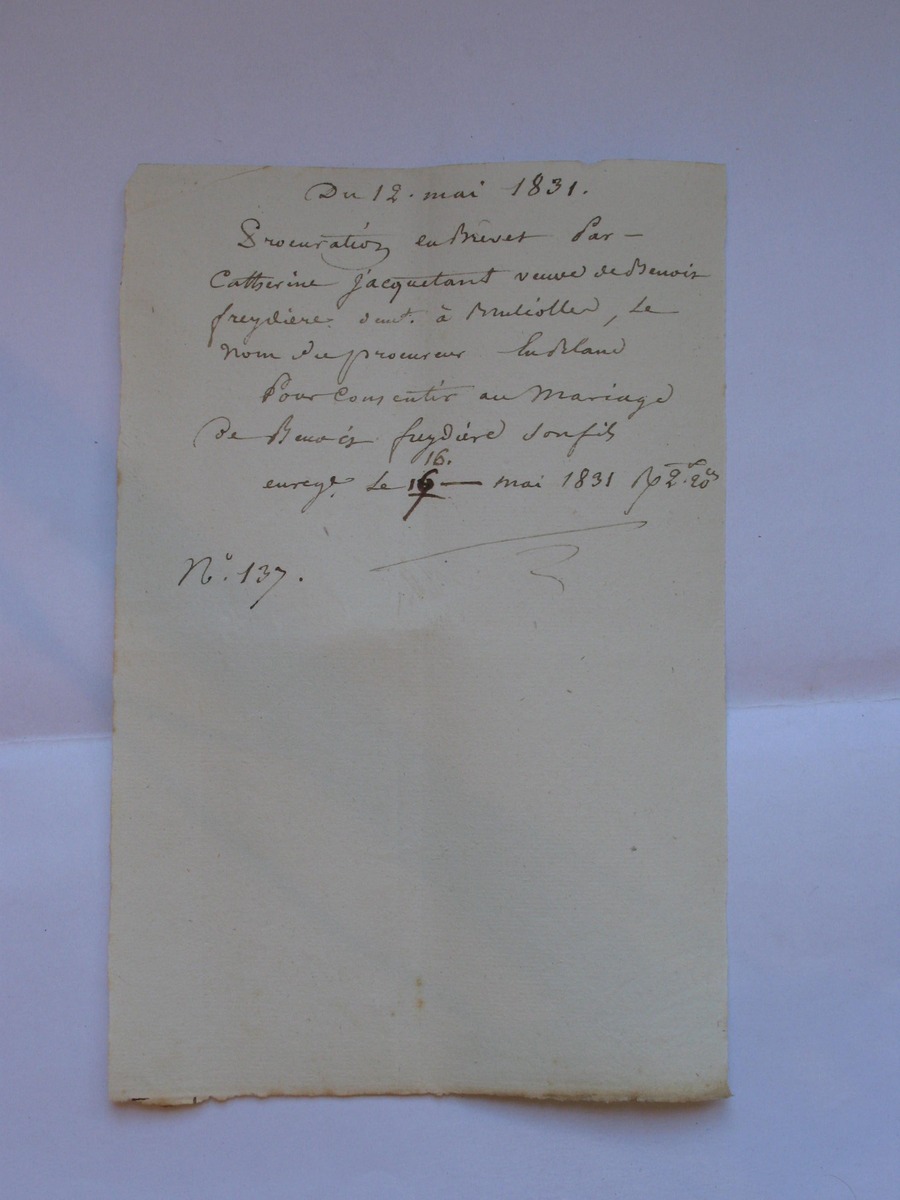 Du 12. mai 1831.
Procuration en Brevet Par –
Catherine jacquetant veuve de Benoit
freydière demt. à Brulioller, Le
nom du procureur En Blanc
Pour Consentir au Mariage
De Benoit freydière Son fils
16.
enregé. Le 16 — mai 1831 R 2f. 20cs
N°. 137.